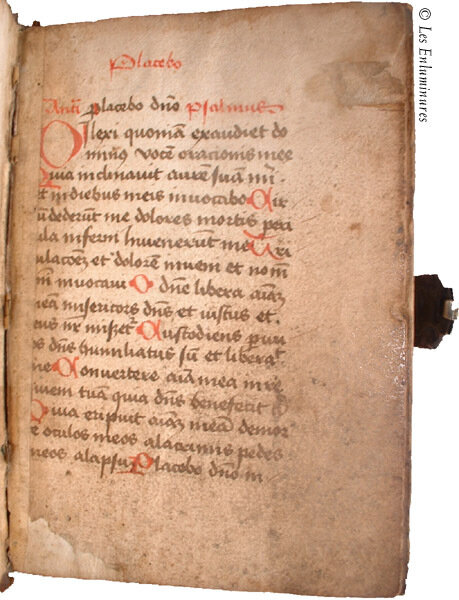 Placebo
Antᷓ placebo dn̄o psalmus
Dilexi quoniam exaudiet do
minus vocē oracionis mee
Quia inclinauit aurē suam m̄.
et in diebus meis inuocabo Cir
cū dederūt me dolores mortis peri
cula inferni Inuenerūt me Tri
bulacoēm et dolorē inueni et nom̄
dn̄i inuocaui O dn̄e libera aiam̄
meā misericors dn̄s et iustus et.
deus nr̄ miset᷑ Custodiens paru
os dn̄s humiliatus sū et liberat
me Conuertere aīa mea in re
quiem tuā quia dn̄s benefecit t
Quia eripuit aiam̄ meā de mor
te oculos meos a lacrimis pedes
meos a lapsu Placebo dn̄o in
© Les Enluminures